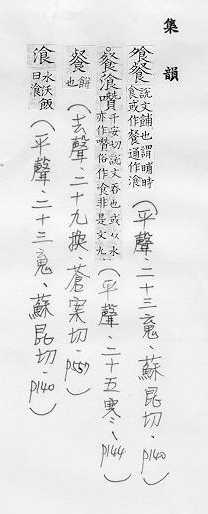 集韻
飱餐 說文餔也謂晡時食或作餐通作湌 (平聲、二十三䰟、蘇昆切、p140)
餐湌囋 千安切說文吞也或从水亦作囋俗作食非是文九 (平聲、二十五寒、p144)
餐 餅也 (去聲、二十九換、蒼案切、p557)
湌 水沃飯曰湌 (平聲、二十三䰟、蘇昆切、p140)